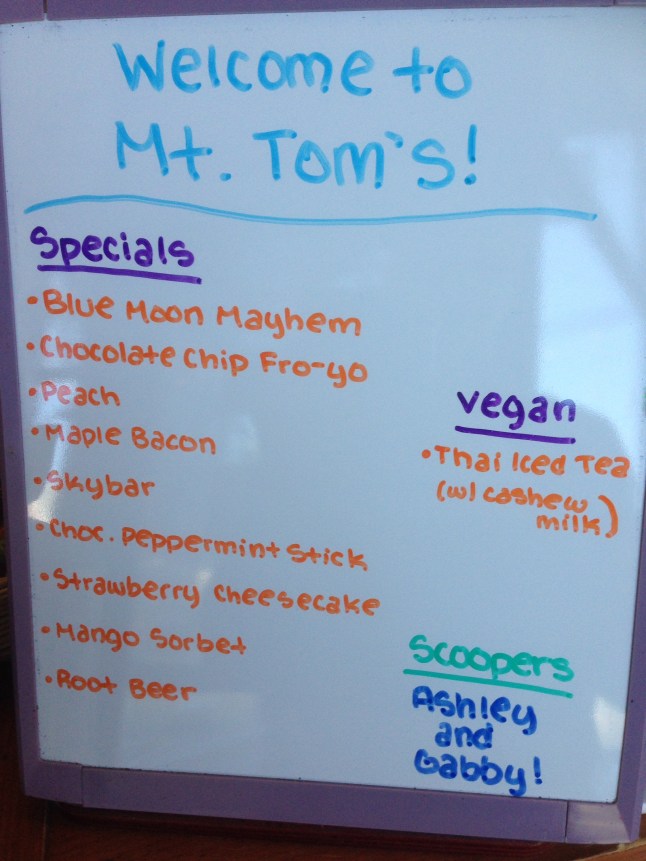 Welcome to
Mt. Tom's!
Specials
•Blue Moon Mayhem
•Chocolate Chip Fro-yo
•Peach
•Maple Bacon
•Skybar
•Choc. Peppermint Stick
•Strawberry Cheesecake
•Mango Sorbet
•Root Beer
vegan
•Thai Iced Tea
(w/ cashew
milk)
Scoopers
Ashley
and
Gabby!